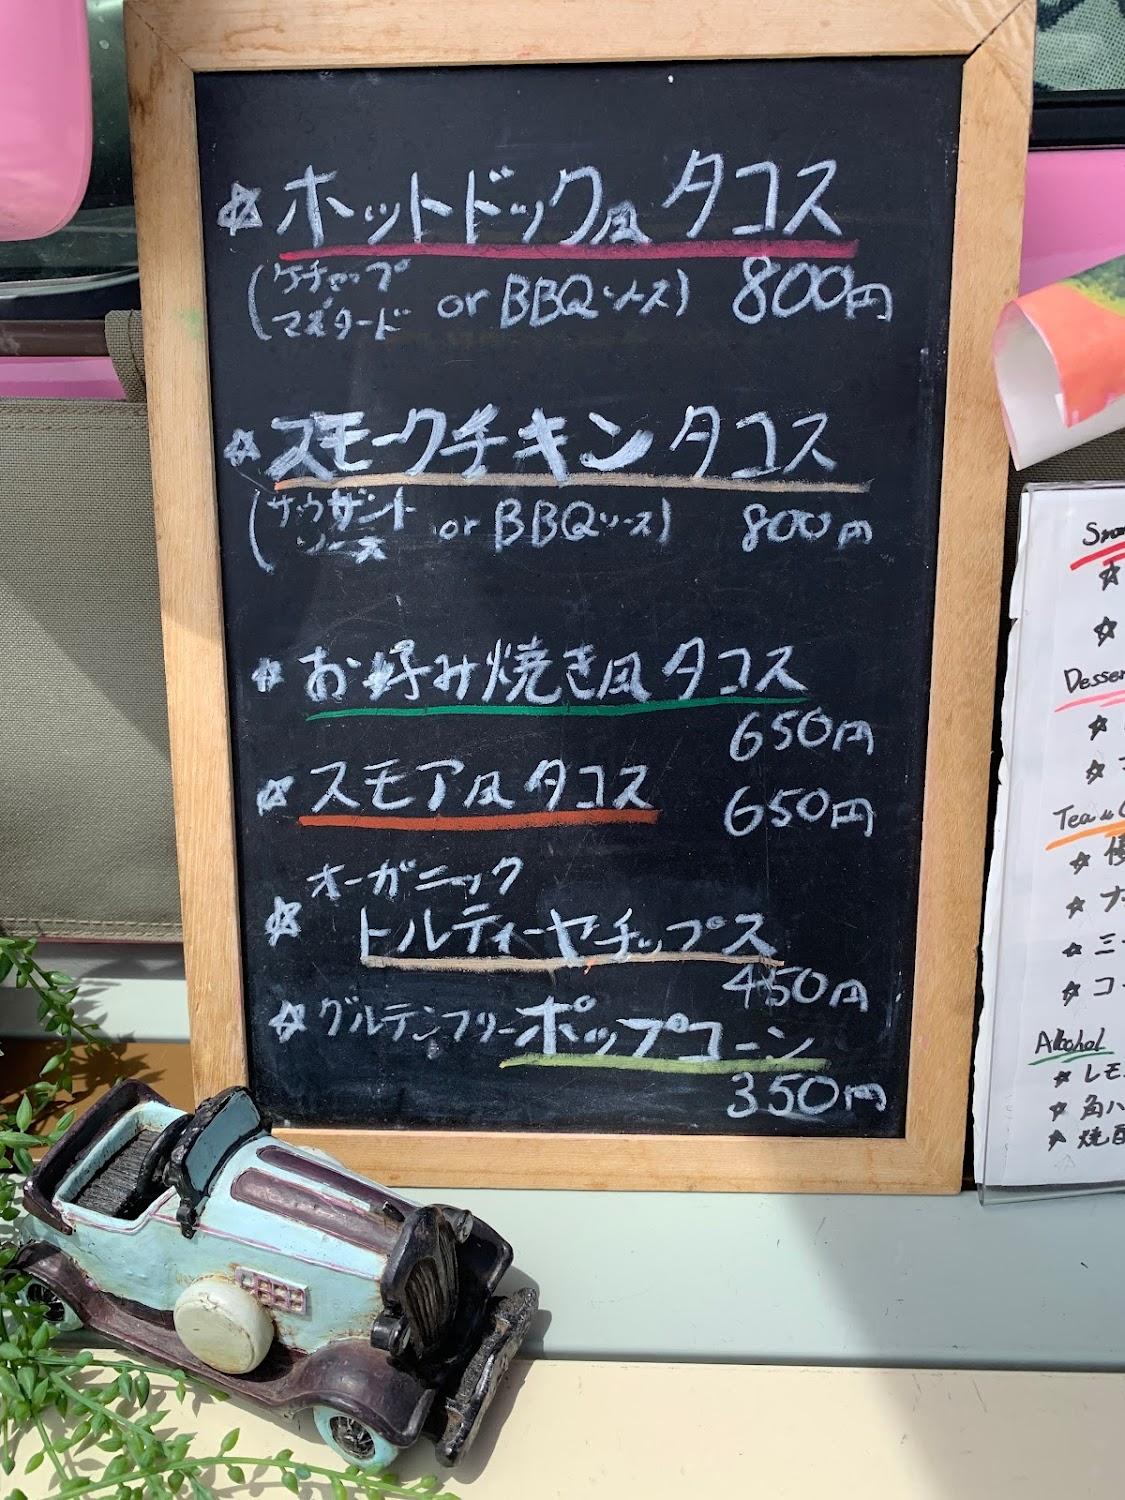 ☆ホットドック風タコス
(ケチャップ マスタード or BBQソース) 800円
☆スモークチキンタコス
(サウザントソース or BBQソース) 800円
☆お好み焼き風タコス
650円
☆スモア風タコス 650円
☆オーガニック
トルティーヤチップス
450円
☆グルテンフリーポップコーン
350円
☆
☆
Desser
☆
☆
Tea
☆
☆
☆三
☆コー
Alcohol
☆レモ
☆角ハ
☆焼酎